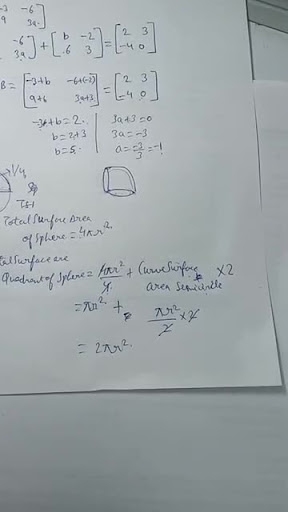 -3 -6
9 3a
-6
3a] + [b -2
6 3] = [2 3
-4 0]
B = [-3+b -6+(-2)
9+6 3a+3] = [2 3
-4 0]
-3+b=2. 3a+3=0
b=2+3 3a=-3
b=5. a=-3/3=-1
1/4
Total Surface Area
of sphere = 4πr².
tal Surface are
Quadrant of sphere = 4πr²/4 + Curve Surface × 2
area Semicircle
= πr². + πr²/2 × 2
= 2πr².